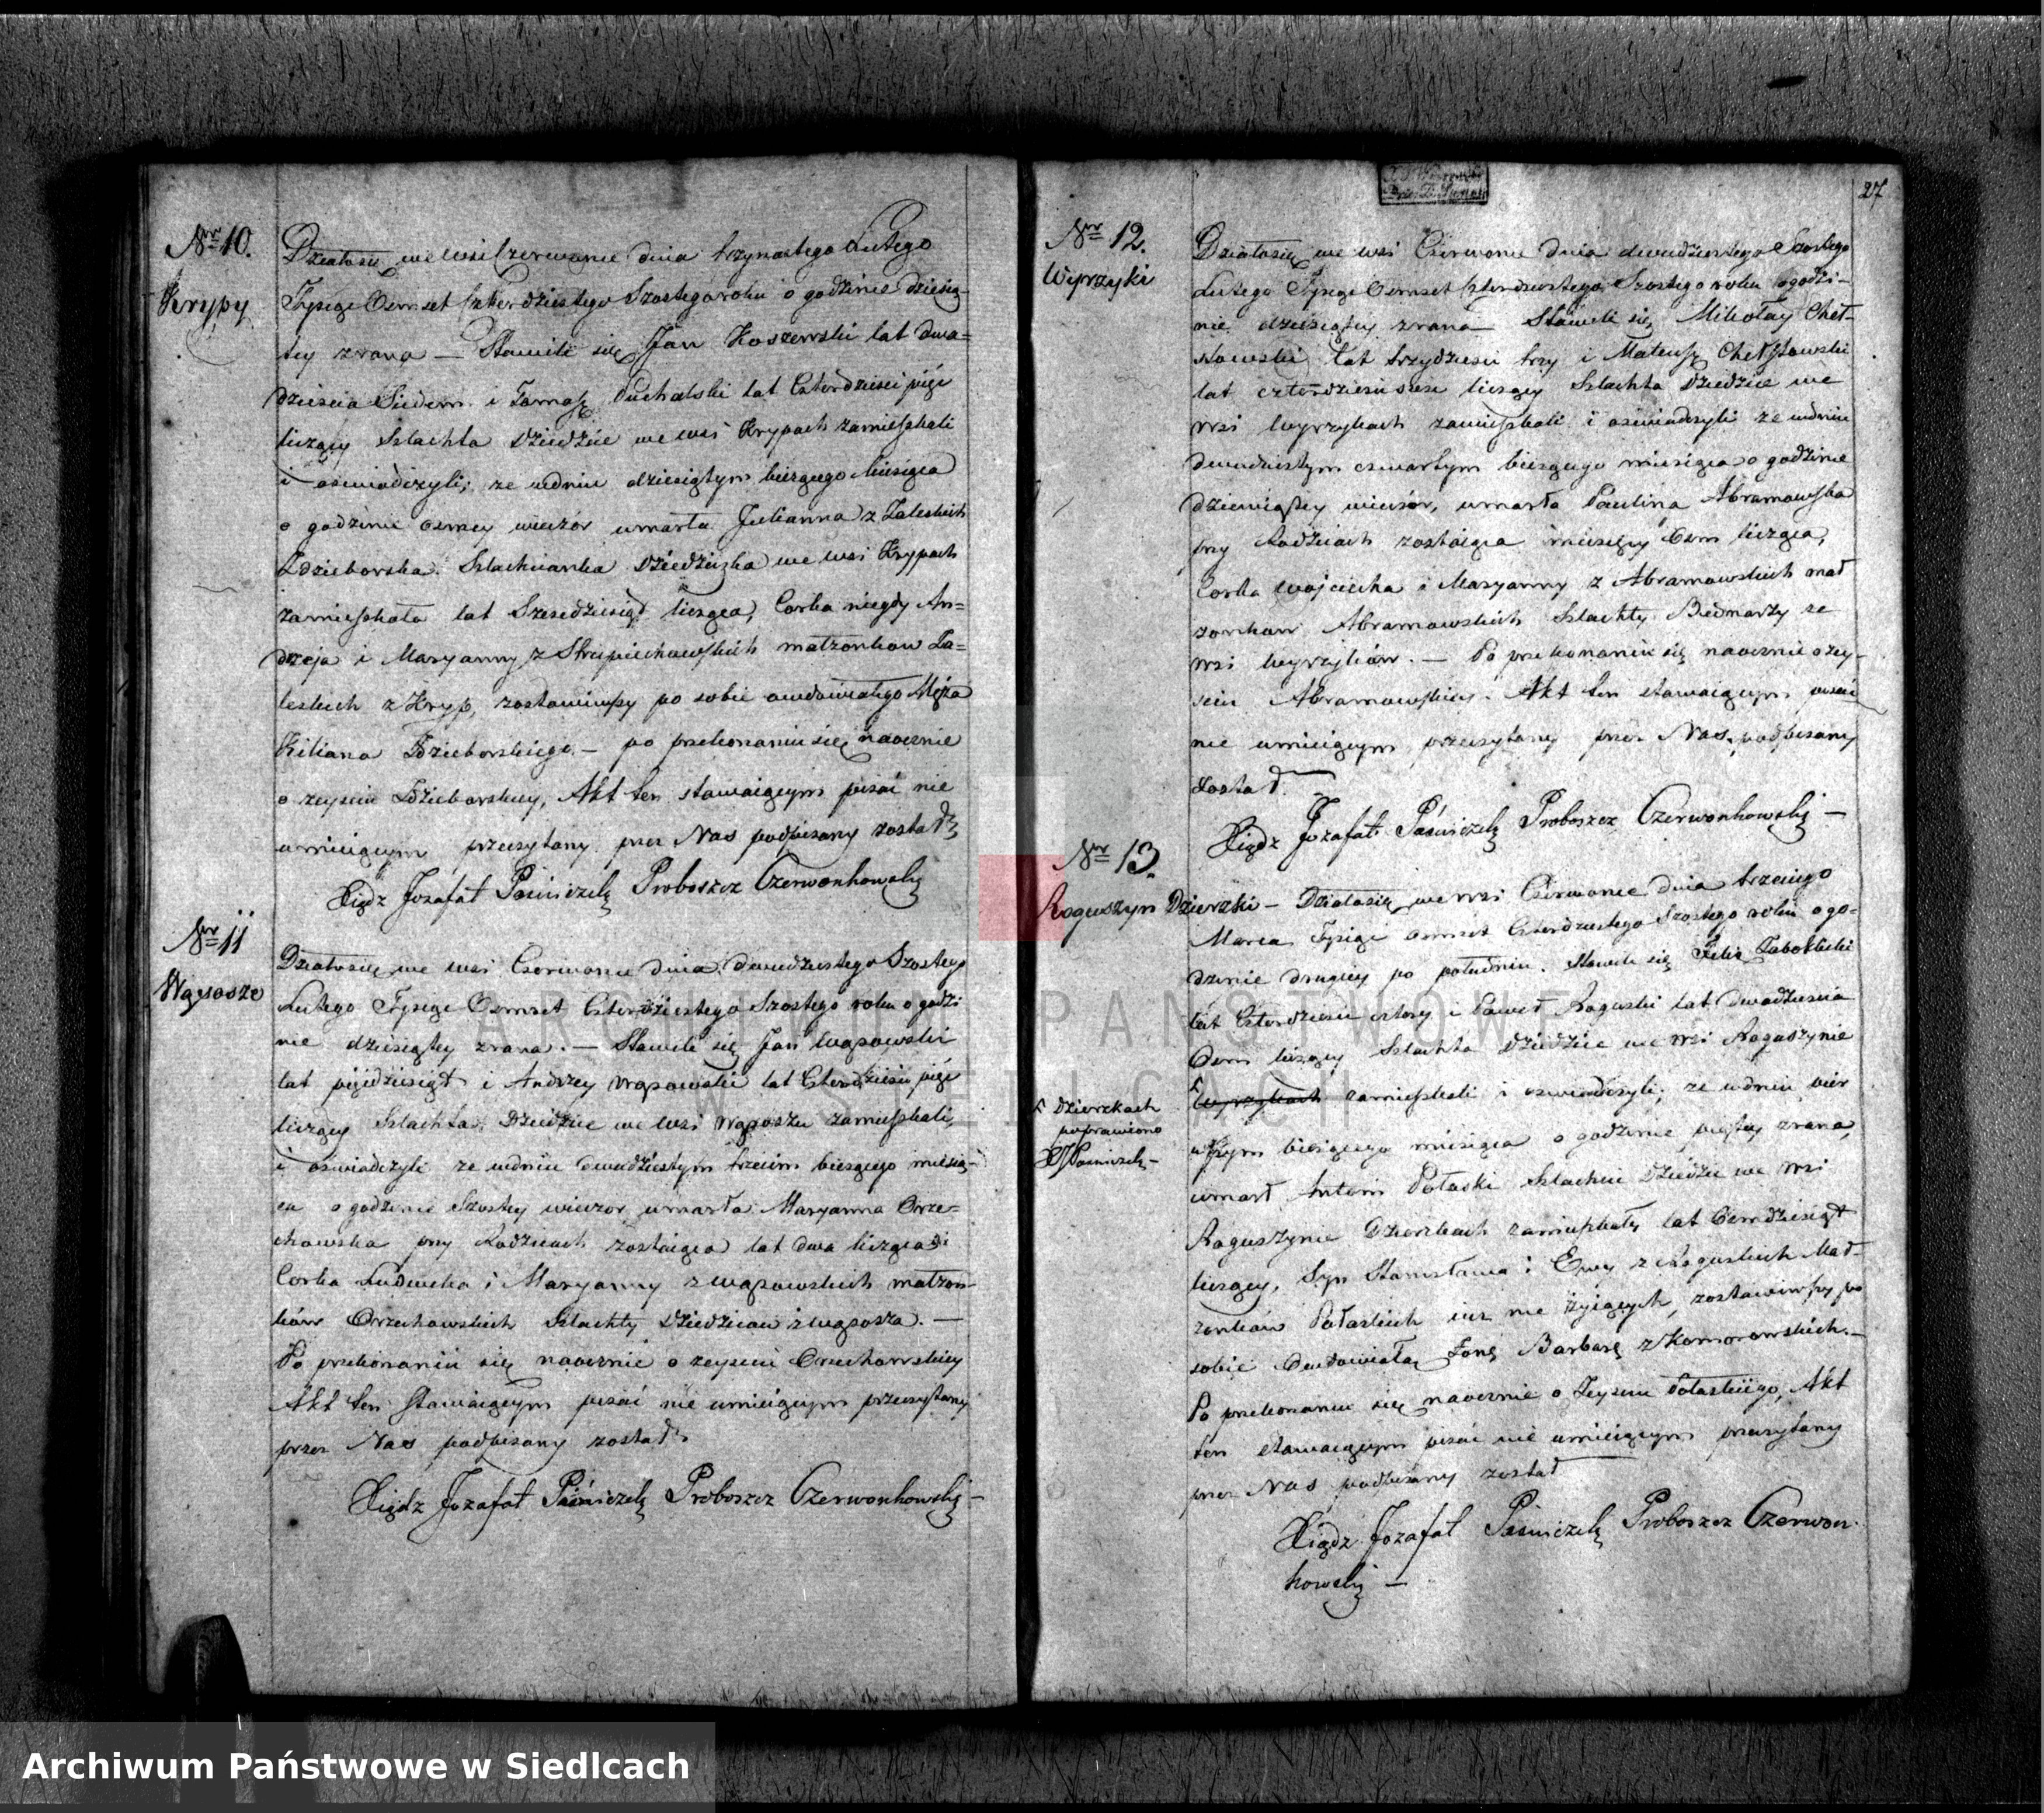 Nr 10.
Krypy
Działosię we wsi Czerwonce dnia trzynastego Lutego
Tysiąc Ośmset Czterdziestego Szostego roku o godzinie dziesią-
tey zrana — Stawili się Jan Koszewski lat dwa=
dzieścia Siedem i Tomasz Suchalski lat Czterdzieści pięć
liczący Szlachta Dziedzice we wsi Krypach zamieszkali
i oświadczyli; że wdniu dziesiątym bieżącego Miesiąca
o godzinie osmey wieczór umarła Julianna z Zaleskich
Zdzieborska Szlachcianka Dziedziczka we wsi Krypach
zamieszkała lat Sześcdziesiąt licząca, Corka niegdy An=
drzeja i Maryanny z małżonkow Za=
leskich z Kryp, zostawiwszy po sobie owdowiałego Męża
Kiliana Zdzieborskiego — po przekonaniu się naocznie
o zeyściu Zdzieborskiey, Akt ten stawaiącym pisać nie
umieiącym przeczytany przez Nas podpisany został
Xiądz Jozafat Paśniczek Proboszcz Czerwonkowski
Nr 11
Wąsosze
Działosię we wsi Czerwonce dnia dwudziestego Szostego
Lutego Tysiąc Ośmset Czterdziestego Szostego roku o godzi
nie dziesiątey zrana. — Stawili się Jan Wąsowski
lat pięćdziesiąt i Andrzey Wąsowski lat Czterdzieści pięć
liczący Szlachta, Dziedzice we wsi Wąsoszu zamieszkali,
i oświadczyli że wdniu dwudziestym trzecim bieżącego miesią-
ca o godzinie Szostey wieczor umarła Maryanna Orze=
chowska przy Rodzicach zostaiąca lat dwa licząca
Corka Ludwika i Maryanny z Wąsowskich małżon-
ków Orzechowskich Szlachty Dziedzicow z Wąsosza. —
Po przekonaniu się naocznie o zeyściu Orzechowskiey
Akt ten Stawaiącym pisać nie umieiącym przeczytany
przez Nas podpisany został
Xiądz Jozafat Paśniczek Proboszcz Czerwonkowski —
27
Nr 12.
Wyrzyki
Działosię we wsi Czerwonce dnia dwudziestego Szostego
Lutego Tysiąc Ośmset Czterdziestego Szostego roku o godzi-
nie dziesiątey zrana Stawili się Mikołay Cheł-
stowski lat trzydzieści trzy i Mateusz Chełstowski
lat czterdzieści liczący Szlachta Dziedzice we
wsi Wyrzykach zamieszkali i oświadczyli że wdniu
dwudziestym czwartym bieżącego miesiąca o godzinie
dziewiątey wieczór, umarła Paulina Abramowska
przy Rodzicach zostaiąca miesięcy Ośm licząca,
Corka Woyciecha i Maryanny z Abramowskich mał
żonkow Abramowskich Szlachty Bednarzy ze
wsi Wyrzyków. — Po przekonaniu się naocznie o zey-
ściu Abramowskiey. Akt ten stawaiącym pisać
nie umieiącym przeczytany przez Nas, podpisany
został.
Xiądz Jozafat Paśniczek Proboszcz Czerwonkowski —
Nr 13.
Roguszyn Dzierzki — Działosię we wsi Czerwonce dnia trzeciego
Marca Tysiąc Ośmset Czterdziestego Szostego roku o go-
dzinie drugiey po południu. Stawili się Felix Zaboklicki
lat Czterdzieści cztery i Paweł Roguski lat dwadzieścia
Ośm liczący Szlachta Dziedzice we wsi Roguszynie
Wyrzykach zamieszkali i oświadczyli; że wdniu pier
wszym bieżącego miesiąca o godzinie piątey zrana,
umarł Antoni Połaski Szlachcic Dziedzic we wsi
Roguszynie Dzierzkach zamieszkały lat Ośmdziesiąt
liczący, Syn Stanisława i Ewy z Roguskich Mał-
żonków Połaskich iuż nie żyiących, zostawiwszy po
sobie Owdowiałą Żonę Barbarę z Komorowskich. —
Po przekonaniu się naocznie o Zeyściu Połaskiego, Akt
ten stawaiącym pisać nie umieiącym przeczytany
przez Nas podpisany został
Xiądz Jozafat Paśniczek Proboszcz Czerwon-
kowski —
Dzierzkach
poprawiono
XJPaśniczek —
ARCHIWUM PAŃSTWOWE
W SIEDLCACH
Archiwum Państwowe w Siedlcach